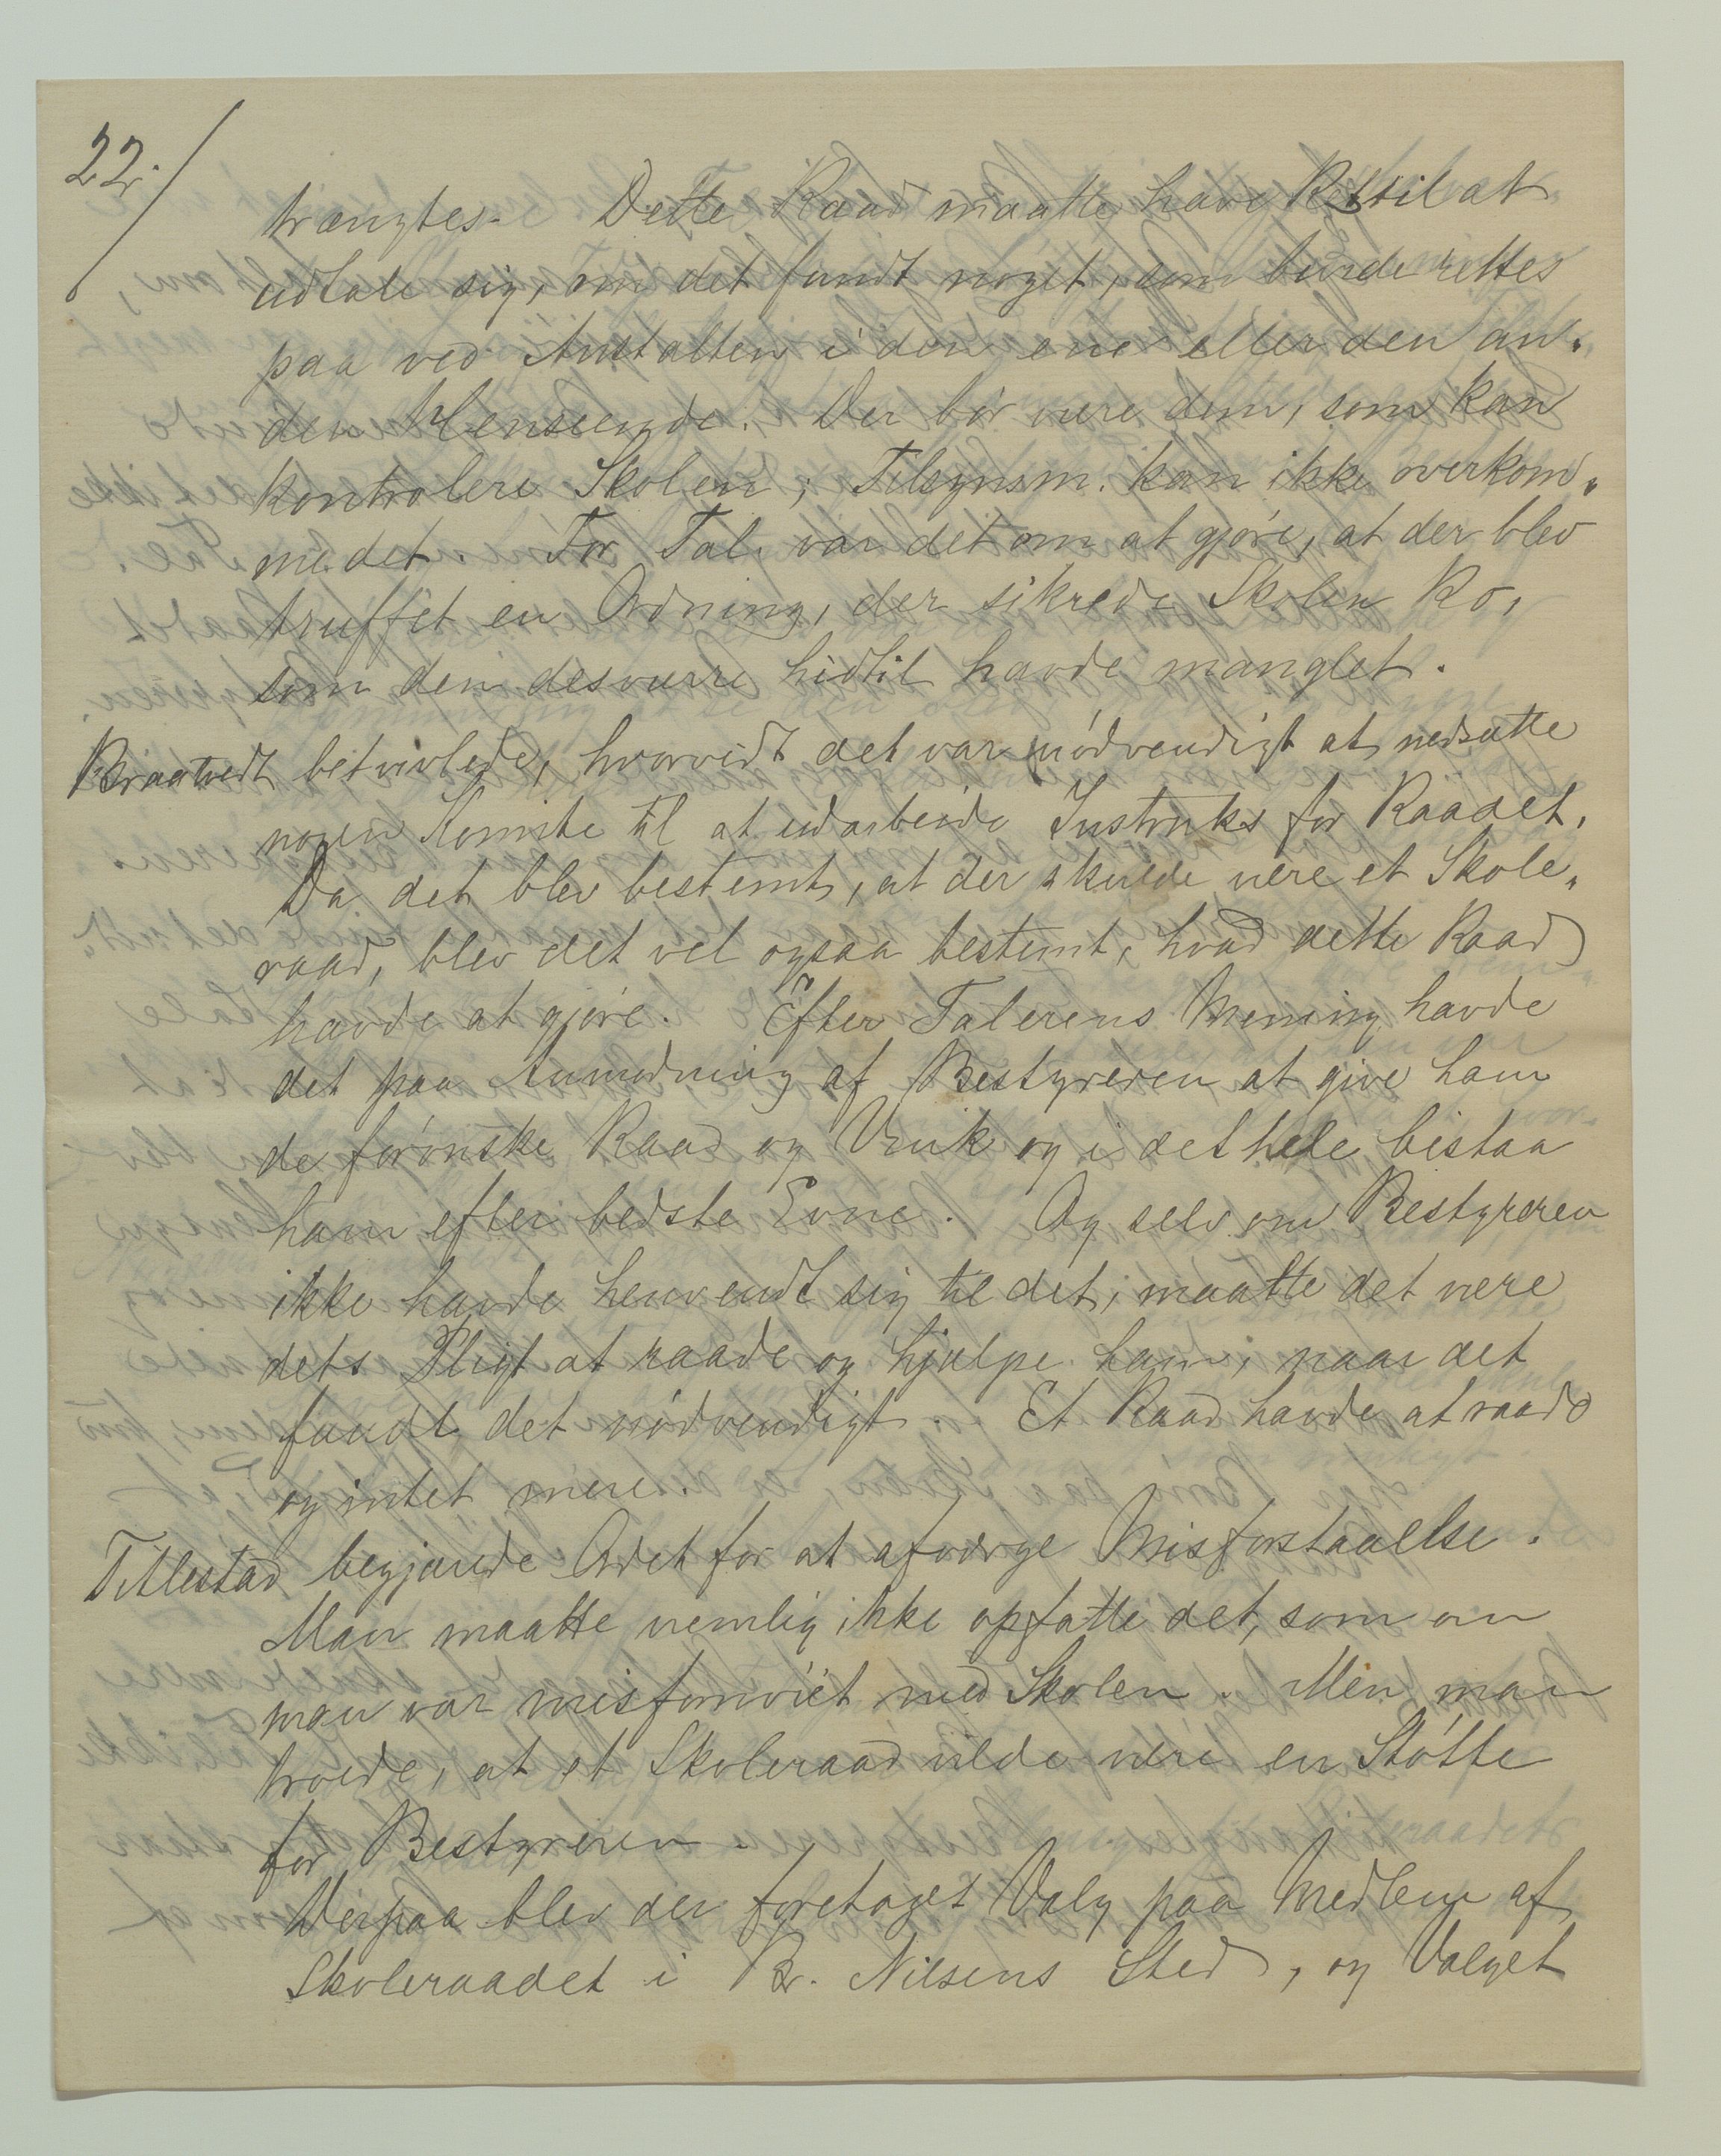 22./
trængtes. Dette Raad maatte have Ret til at
udtale sig, om det fandt noget, som burde rettes
paa ved Anstalten i den ene eller den an-
den Henseende. Der bør være dem, som kan
kontrolere Skolen; Tilsynsm. kan ikke overkom-
me det. For Tal. var det om at gjøre, at der blev
truffet en Ordning, der sikrede Skolen Ro,
som den desværre hidtil havde manglet.
Braatvedt betvivlede, hvorvidt det var nødvendigt at nedsætte
nogen Komite til at udarbeide Instruks for Raadet.
Da det blev bestemt, at der skulde være et Skole-
raad, blev det vel ogsaa bestemt, hvad dette Raad
havde at gjøre. Efter Talerens Mening havde
det paa Anmodning af Bestyreren at give ham
de forønske Raad og Vink og i det hele bistaa
ham efter bedste Evne. Og selv om Bestyreren
ikke havde henvendt sig til det, maatte det være
dets Pligt at raade og hjælpe ham, naar det
fandt det nødvendigt. Et Raad havde at raade
og intet mere.
Titlestad begjærede Ordet for at afværge Misforstaaelse.
Man maatte nemlig ikke opfatte det, som om
man var misfornøiet med Skolen. Men man
troede, at et Skoleraad vilde være en Støtte
for Bestyreren.
Derpaa blev der foretaget Valg paa Medlem af
Skoleraadet i Br. Nilsens Sted, og Valget